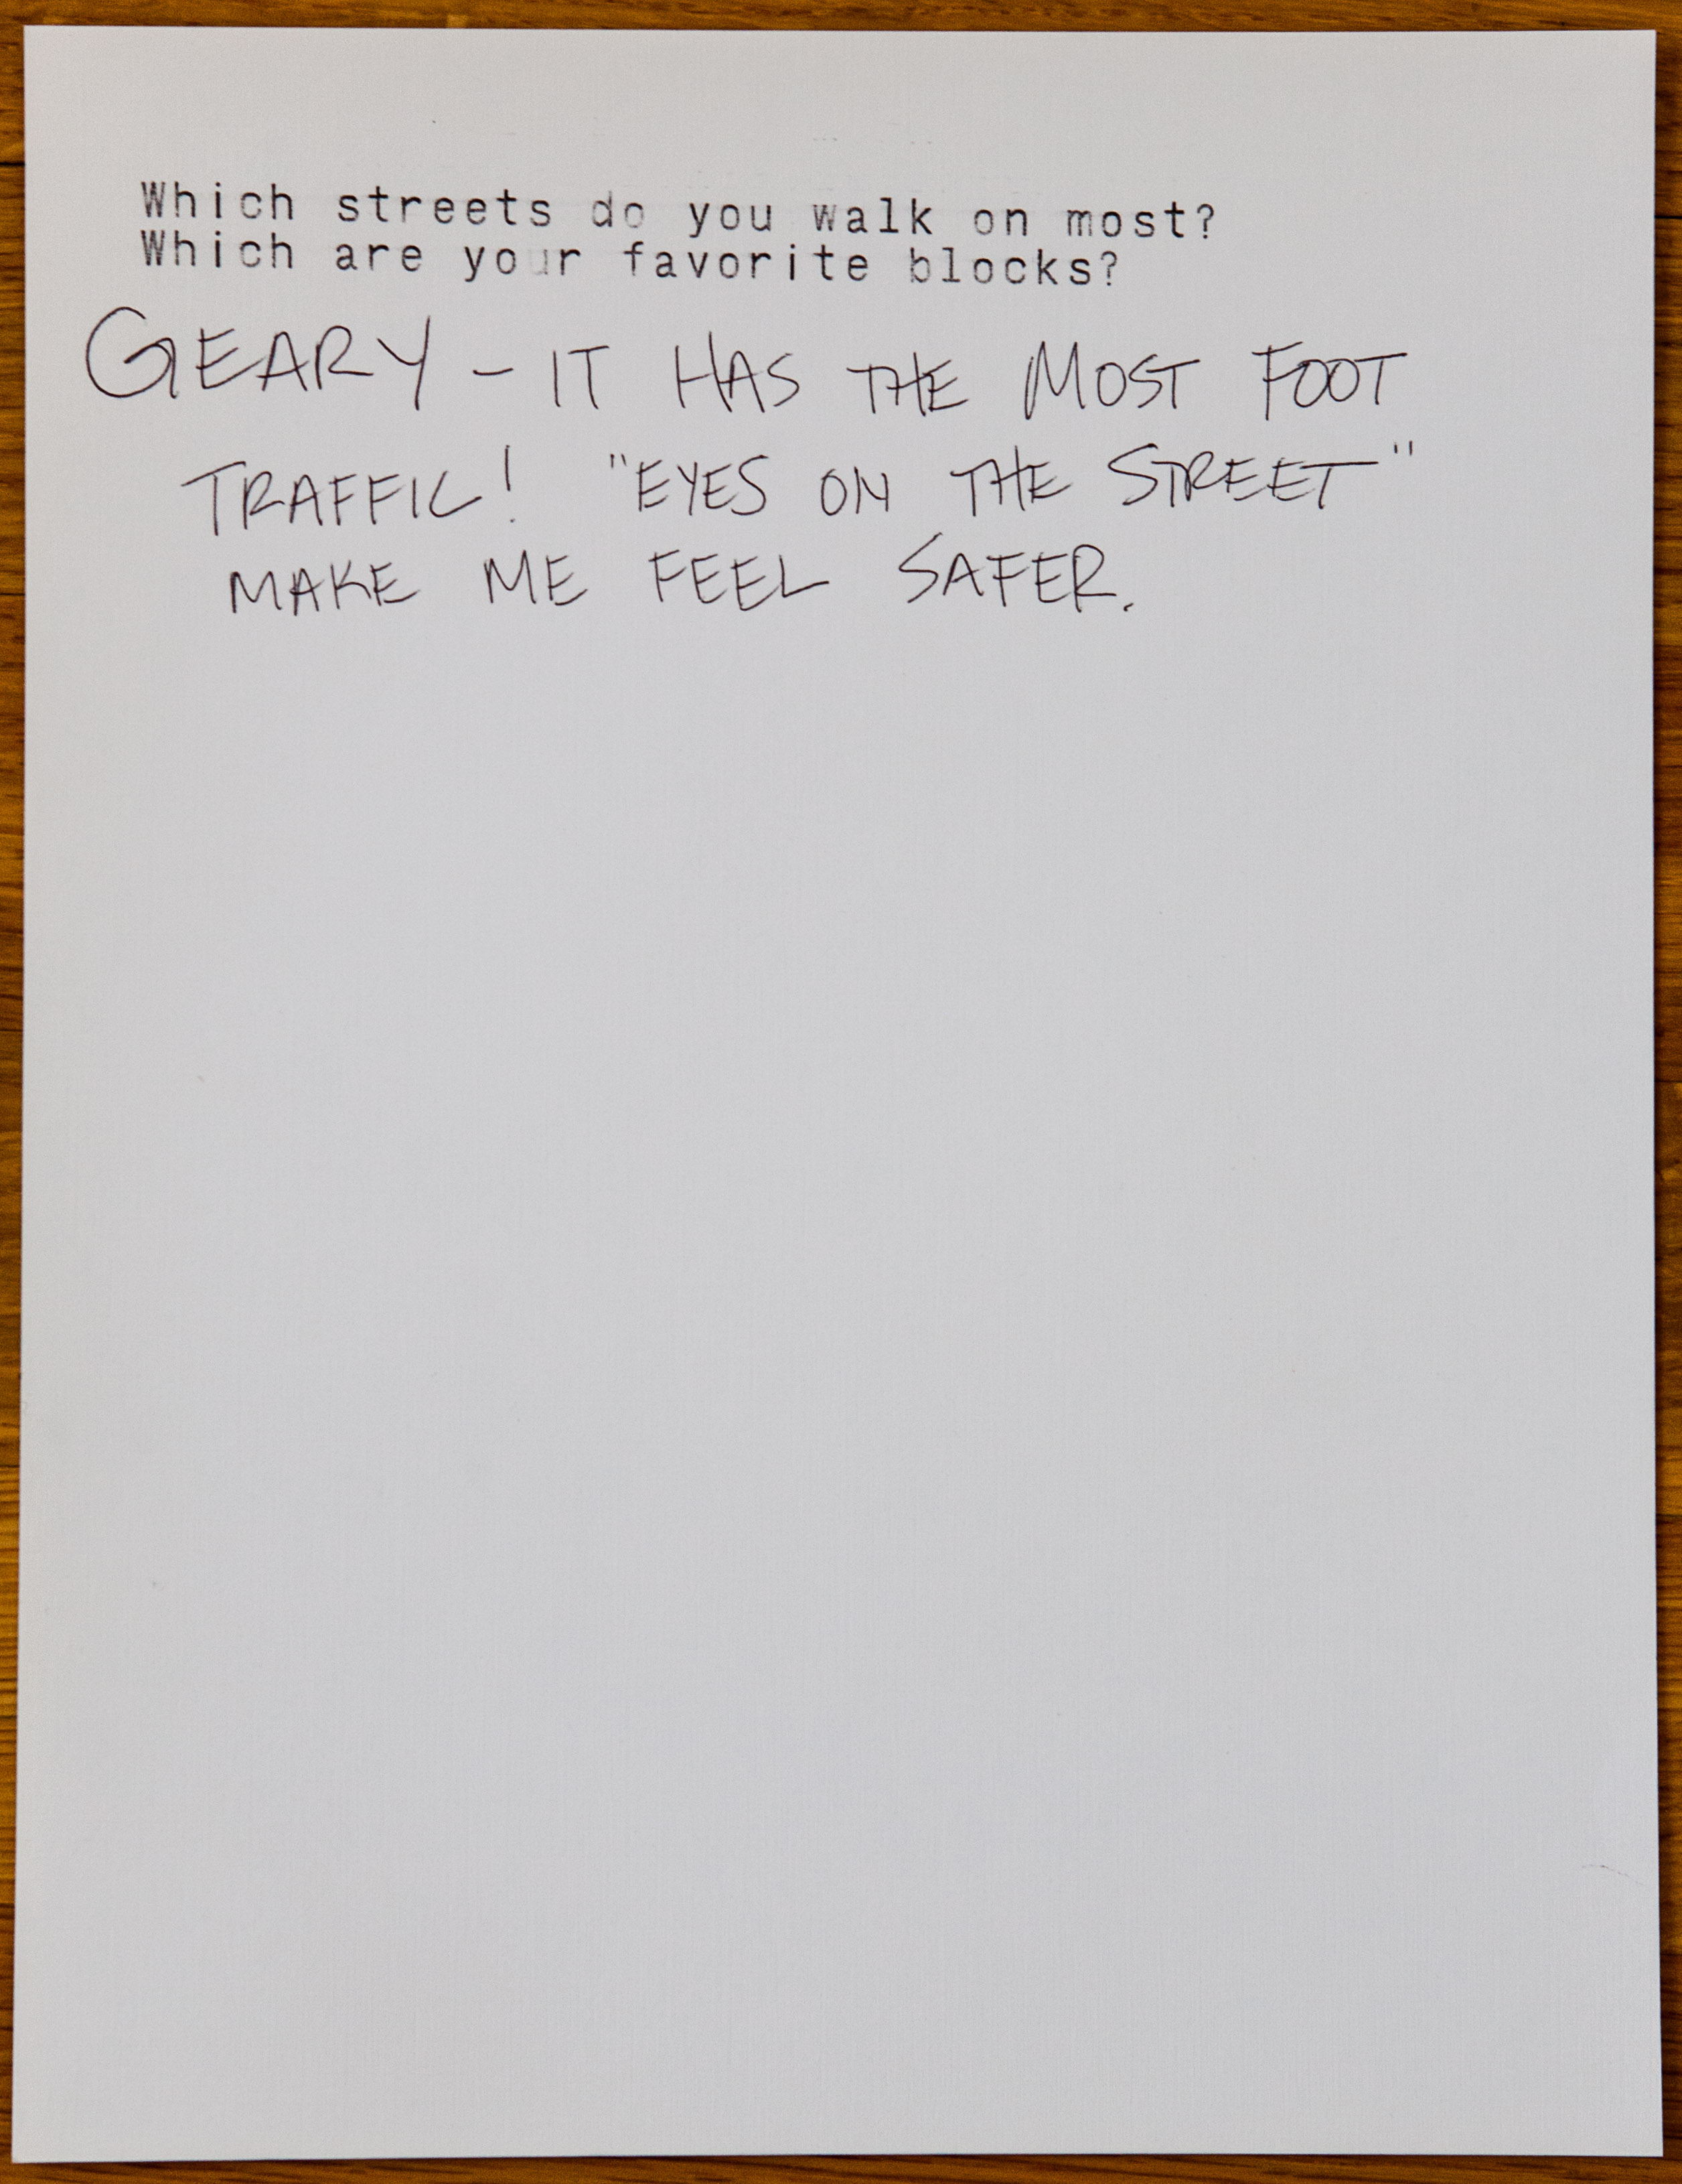 Which streets do you walk on most?
Which are your favorite blocks?
GEARY - IT HAS THE MOST FOOT
TRAFFIC! "EYES ON THE STREET"
MAKE ME FEEL SAFER.